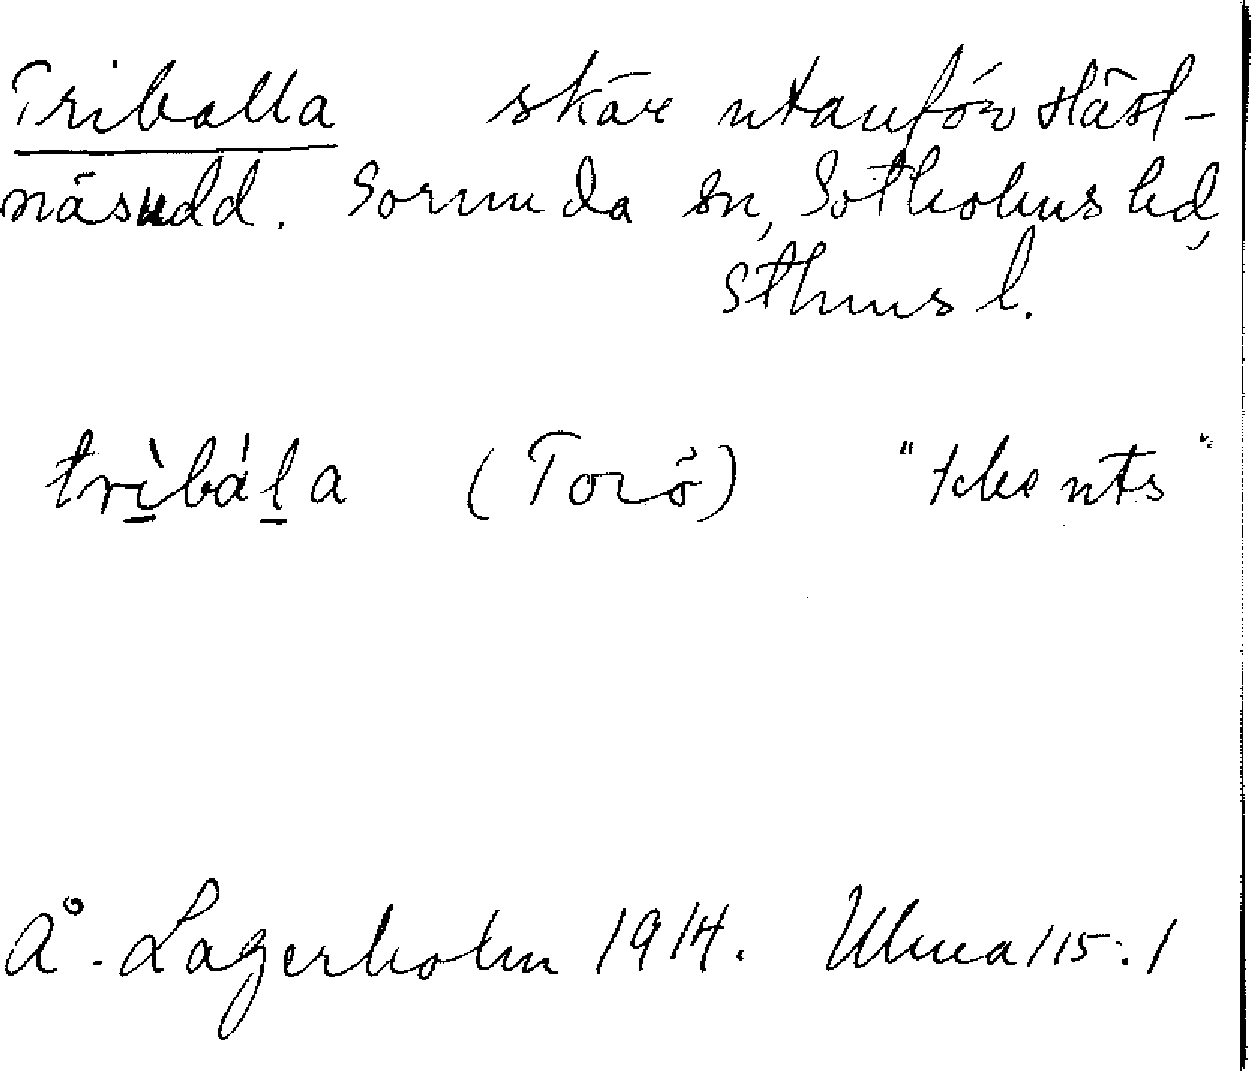 Triballa skär utanför Häst-
näsudd. Sorunda sn, Sotholms hd,
Sthms l.
trìbál̠a (Torö) "icke uts"
Å. Lagerholm 1914. Ulma 115:1